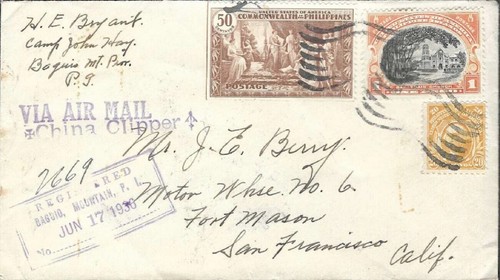 H. E. Bryant.
Camp John Hay.
Baguio Mt. Prov.
P. I.
50
UNITED STATES OF AMERICA
COMMONWEALTH OF THE PHILIPPINES
POSTAGE
1
20
VIA AIR MAIL
China Clipper
2669
REGISTERED
BAGUIO, MOUNTAIN, P. I.
JUN 17 1936
No.
Mr. J. E. Berry.
Motor Whse. No. 6
Fort Mason
San Francisco
Calif.